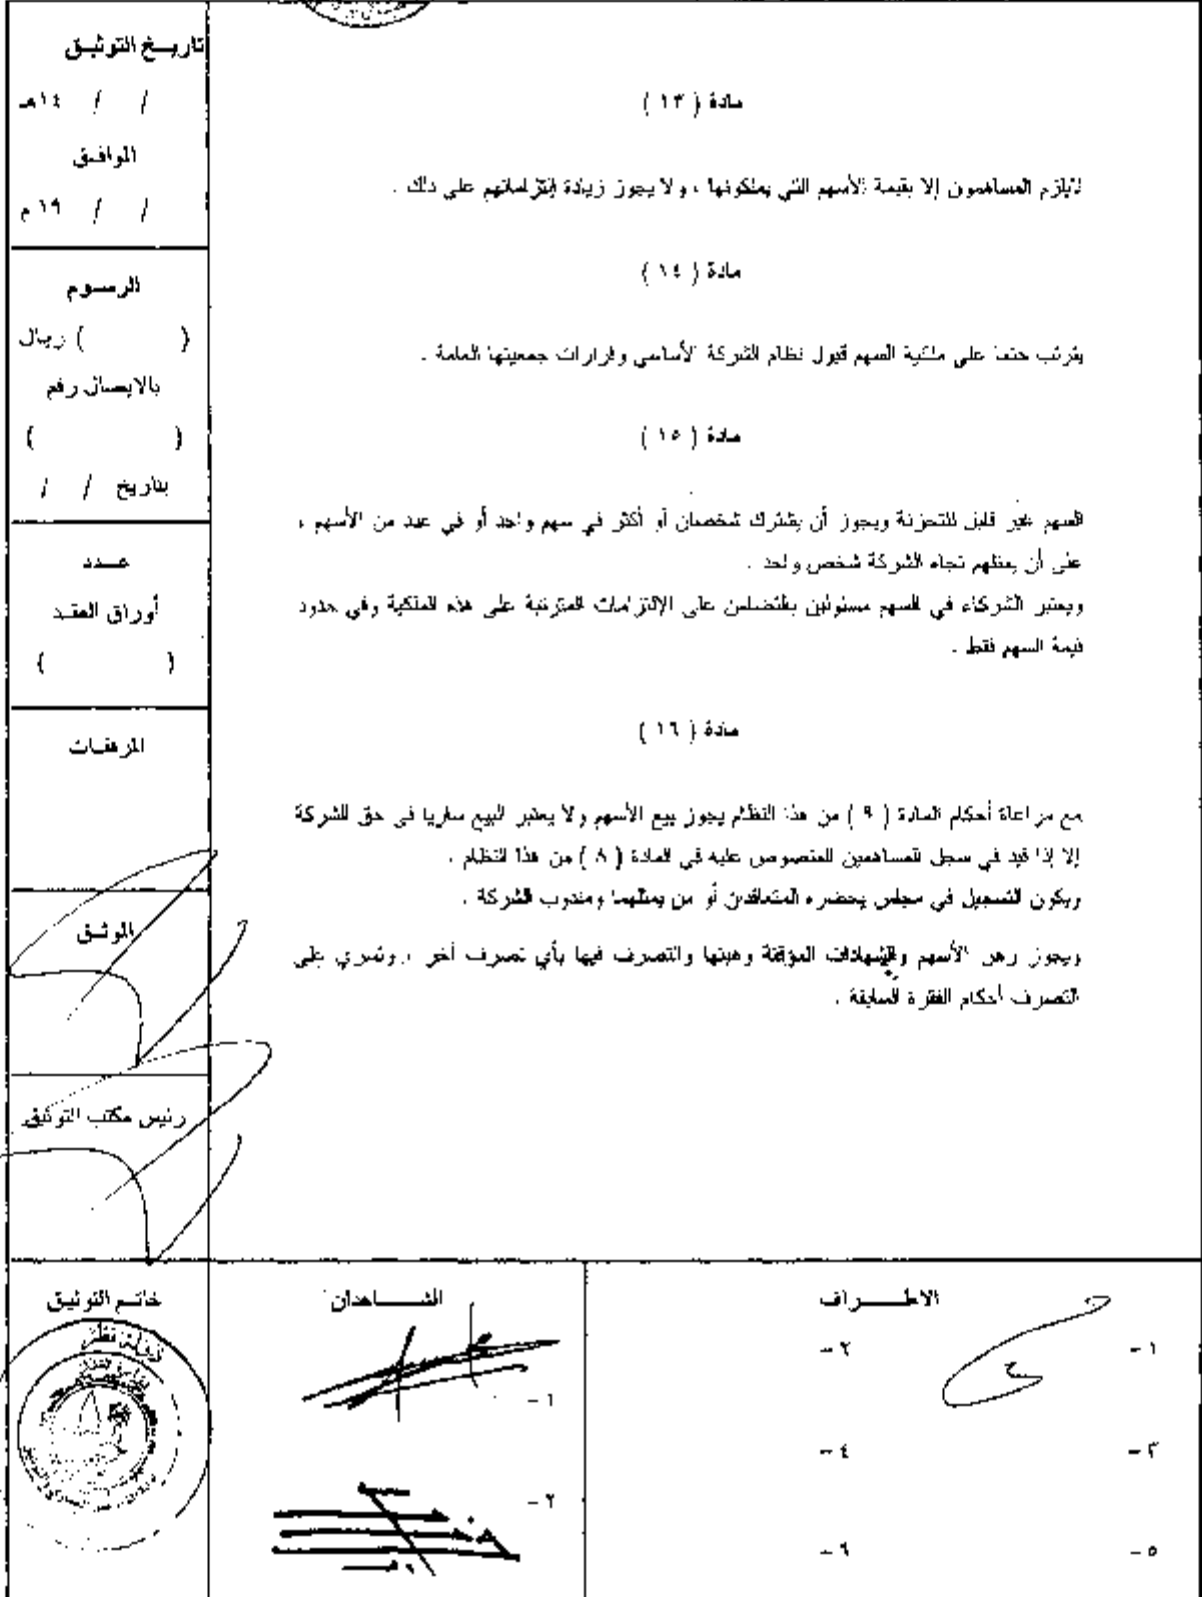 مادة ( ١٣ )
لايلزم المساهمون إلا بقيمة الأسهم التي يملكونها ، ولا يجوز زيادة إلتزاماتهم على ذلك .
مادة ( ١٤ )
يترتب حتما على ملكية السهم قبول نظام الشركة الأساسي وقرارات جمعيتها العامة .
مادة ( ١٥ )
السهم غير قابل للتجزئة ويجوز أن يشترك شخصان أو أكثر في سهم واحد أو في عدد من الأسهم ،
على أن يمثلهم تجاه الشركة شخص واحد .
ويعتبر الشركاء في السهم مسئولين بالتضامن على الإلتزامات المترتبة على هذه الملكية وفي حدود
قيمة السهم فقط .
مادة ( ١٦ )
مع مراعاة أحكام المادة ( ٩ ) من هذا النظام يجوز بيع الأسهم ولا يعتبر البيع ساريا في حق الشركة
إلا إذا قيد في سجل المساهمين المنصوص عليه في المادة ( ٨ ) من هذا النظام .
ويكون التسجيل في مجلس يحضره المتعاقدين أو من يمثلهما ومندوب الشركة .
ويجوز رهن الأسهم والشهادات المؤقتة وهبتها والتصرف فيها بأي تصرف آخر ، وتسري على
التصرف أحكام الفقرة السابقة .
تاريـخ التوثيـق
/ / ١٤هـ
الموافـق
/ / ١٩ م
الرسـوم
( ) ريال
بالايصال رقم
( )
بتاريخ / /
عـدد
أوراق العقـد
( )
المرفقـات
الموثـق
رئيس مكتب التوثيق
الاطـــراف
١ -
٢ -
٣ -
٤ -
٥ -
٦ -
الشـــاهدان
١ -
٢ -
خاتـم التوثيـق